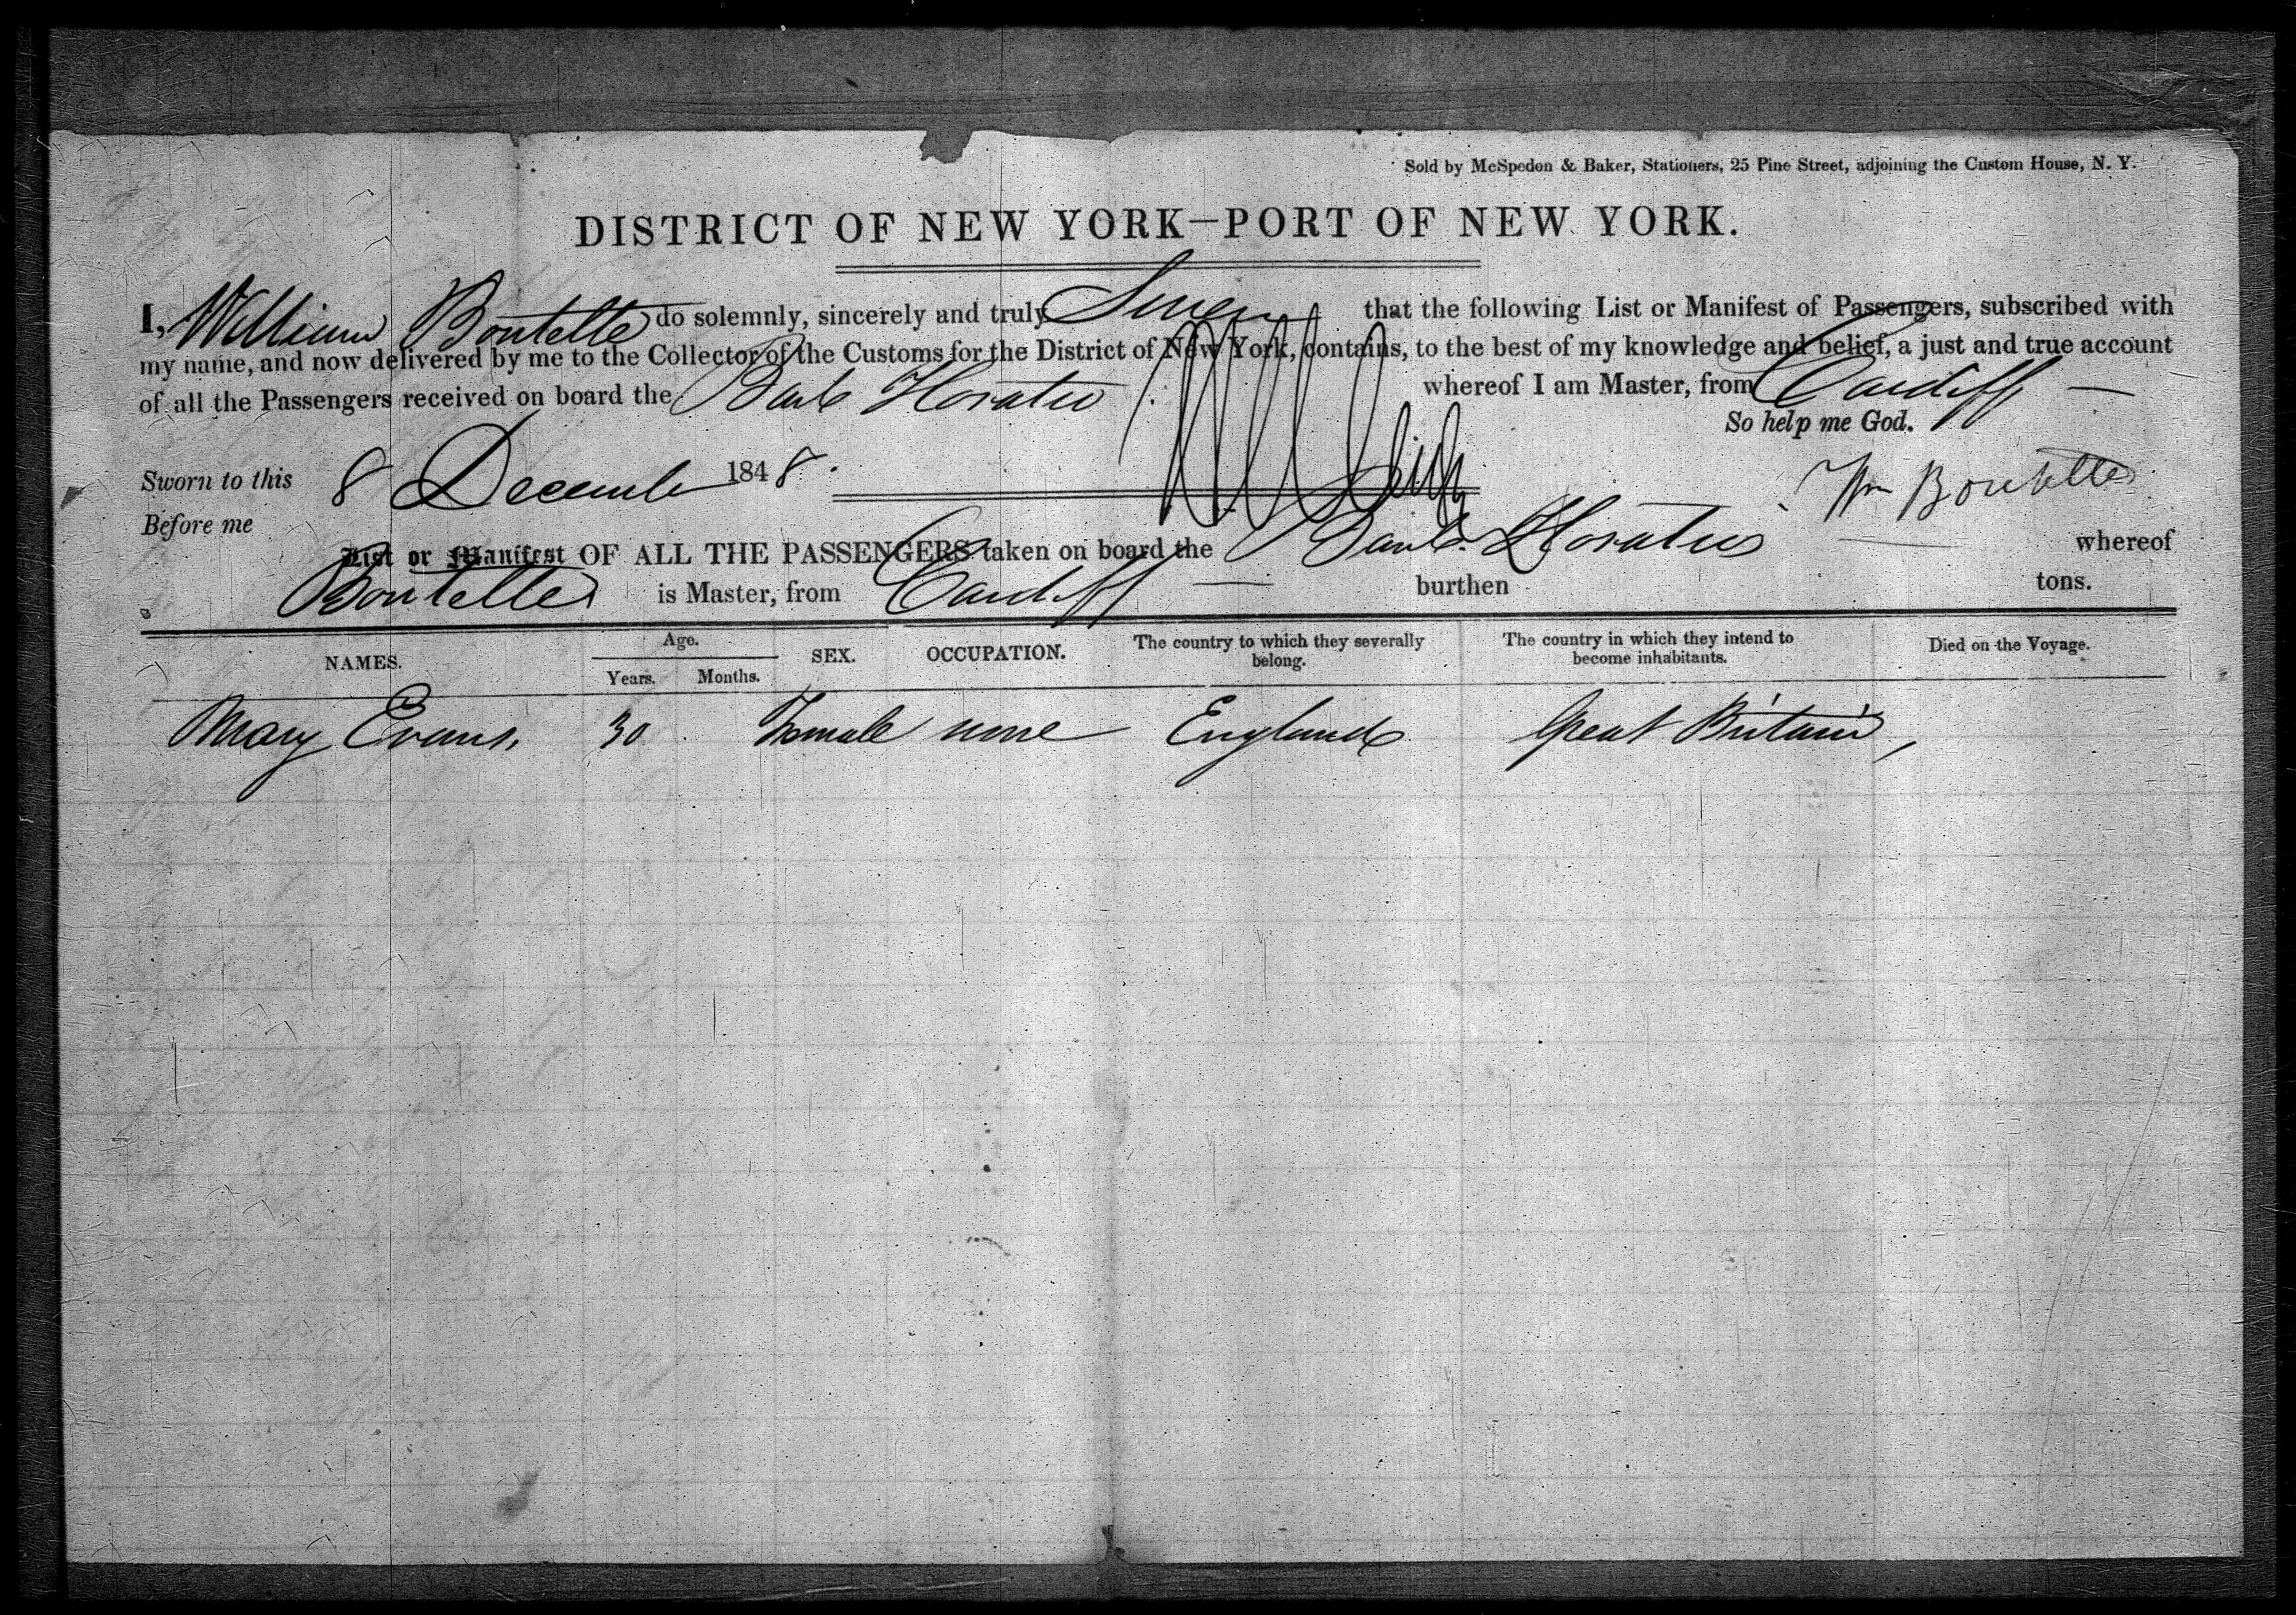 Sold by McSpedon & Baker, Stationers, 25 Pine Street, adjoining the Custom House, N. Y.
DISTRICT OF NEW YORK—PORT OF NEW YORK.
I, William Boutelle do solemnly, sincerely and truly Swear that the following List or Manifest of Passengers, subscribed with
my name, and now delivered by me to the Collector of the Customs for the District of New York, contains, to the best of my knowledge and belief, a just and true account
of all the Passengers received on board the Bark Horatio whereof I am Master, from Cardiff —
So help me God.
Sworn to this 8 December 1848.
Wm Boutelle
Before me
List or Manifest OF ALL THE PASSENGERS taken on board the Bark Horatio whereof
Boutelle is Master, from Cardiff — burthen tons.
NAMES. Age. Years. Months. SEX. OCCUPATION. The country to which they severally belong. The country in which they intend to become inhabitants. Died on the Voyage.
Mary Evans, 30 Female none England Great Britain,